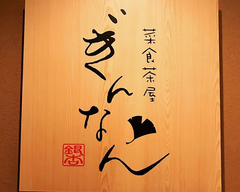 菜食茶屋
ぎんなん
銀杏